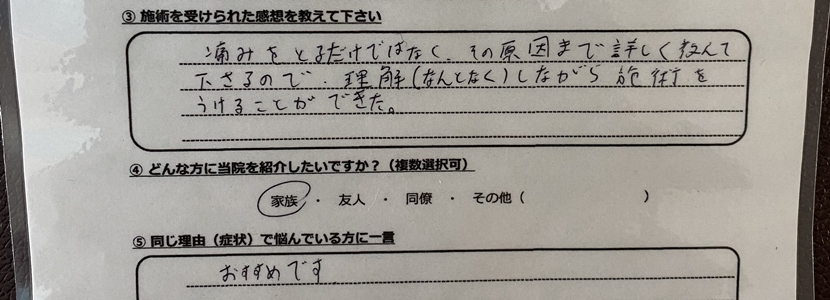 ③ 施術を受けられた感想を教えて下さい
痛みをとるだけではなく、その原因まで詳しく教えて
下さるので、理解(なんとなく)しながら施術を
うけることができた。
④ どんな方に当院を紹介したいですか？（複数選択可）
家族 ・ 友人 ・ 同僚 ・ その他（ ）
⑤ 同じ理由（症状）で悩んでいる方に一言
おすすめです